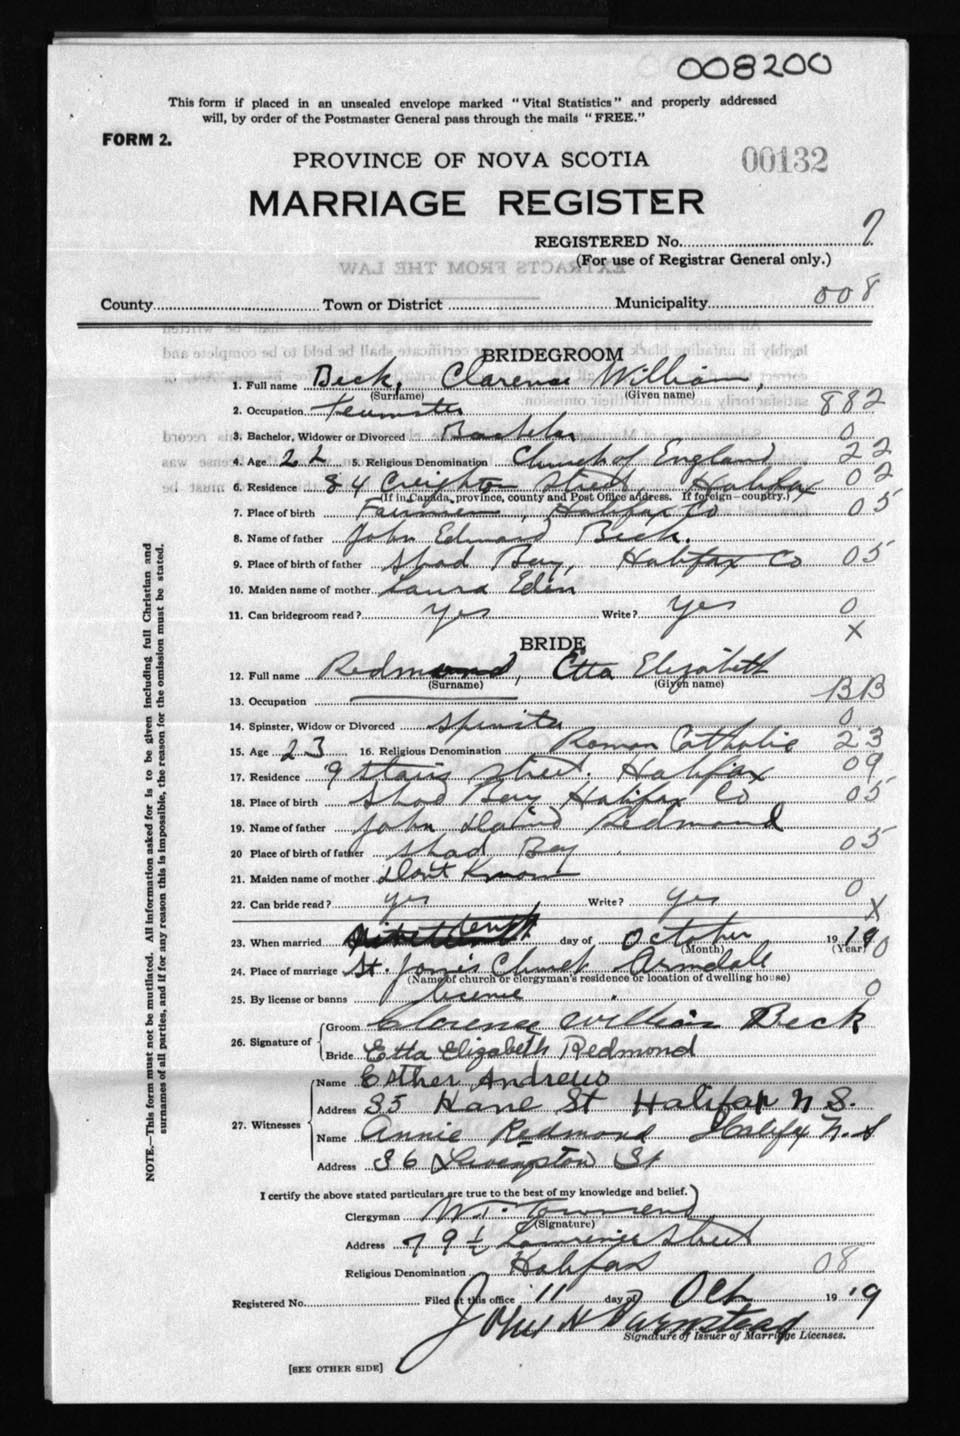 008200
This form if placed in an unsealed envelope marked "Vital Statistics" and properly addressed
will, by order of the Postmaster General pass through the mails "FREE."
FORM 2.
PROVINCE OF NOVA SCOTIA
00132
MARRIAGE REGISTER
REGISTERED No. 7
(For use of Registrar General only.)
County Town or District Municipality 008
BRIDEGROOM
1. Full name Beck, Clarence William,
(Surname) (Given name)
2. Occupation Teamster 882
3. Bachelor, Widower or Divorced Bachelor 0
4. Age 22 5. Religious Denomination Church of England 22
6. Residence 84 Creighton Street, Halifax 02
(If in Canada, province, county and Post Office address. If foreign—country.)
7. Place of birth , Halifax Co 05
8. Name of father John Edward Beck.
9. Place of birth of father Shad Bay, Halifax Co 05
10. Maiden name of mother Laura Eden
11. Can bridegroom read? Yes Write? Yes 0
X
BRIDE
12. Full name Redmond, Etta Elizabeth
(Surname) (Given name)
13. Occupation BB
14. Spinster, Widow or Divorced Spinster 0
15. Age 23 16. Religious Denomination Roman Catholic 23
17. Residence 9 Stairs Street. Halifax 09
18. Place of birth Shad Bay Halifax Co 05
19. Name of father John David Redmond
20 Place of birth of father Shad Bay 05
21. Maiden name of mother Dont Know
22. Can bride read? yes Write? yes 0
X
23. When married tenth day of October 19 19
(Month) (Year) 0
24. Place of marriage St. Church Armdale
(Name of church or clergyman's residence or location of dwelling house)
25. By license or banns license 0
26. Signature of Groom Clarence William Beck
Bride Etta Elizabeth Redmond
27. Witnesses Name Esther Andrews
Address 35 Kane St Halifax N.S.
Name Annie Redmond Halifax N.S
Address 36 Livingston St
I certify the above stated particulars are true to the best of my knowledge and belief.)
Clergyman W. Townsend
(Signature)
Address 79½ Lawrence Street
Religious Denomination Halifax 08
Registered No. Filed at this office 11 day of Oct 19 19
John H Barnstead
Signature of Issuer of Marriage Licenses.
[SEE OTHER SIDE]
NOTE.—This form must not be mutilated. All information asked for is to be given including full Christian and
surnames of all parties, and if for any reason this is impossible, the reason for the omission must be stated.